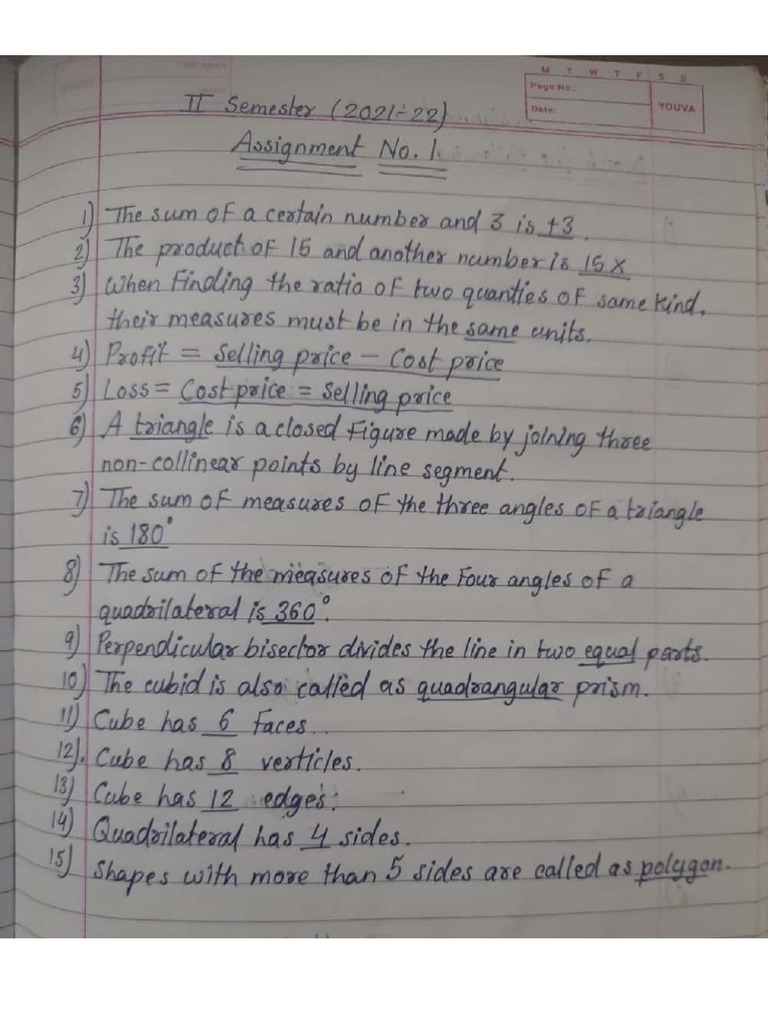 M T W T F S S
Page No.:
Date:
YOUVA
II Semester (2021-22)
Assignment No. 1
1) The sum of a certain number and 3 is +3.
2) The product of 15 and another number is 15x
3) When finding the ratio of two quanties of same kind,
their measures must be in the same units.
4) Profit = Selling price - Cost price
5) Loss = Cost price = Selling price
6) A triangle is a closed figure made by joining three
non-collinear points by line segment.
7) The sum of measures of the three angles of a triangle
is 180°
8) The sum of the measures of the four angles of a
quadrilateral is 360°.
9) Perpendicular bisector divides the line in two equal parts.
10) The cubid is also called as quadrangular prism.
11) Cube has 6 faces.
12). Cube has 8 verticles.
13) Cube has 12 edges.
14) Quadrilateral has 4 sides.
15) Shapes with more than 5 sides are called as polygon.